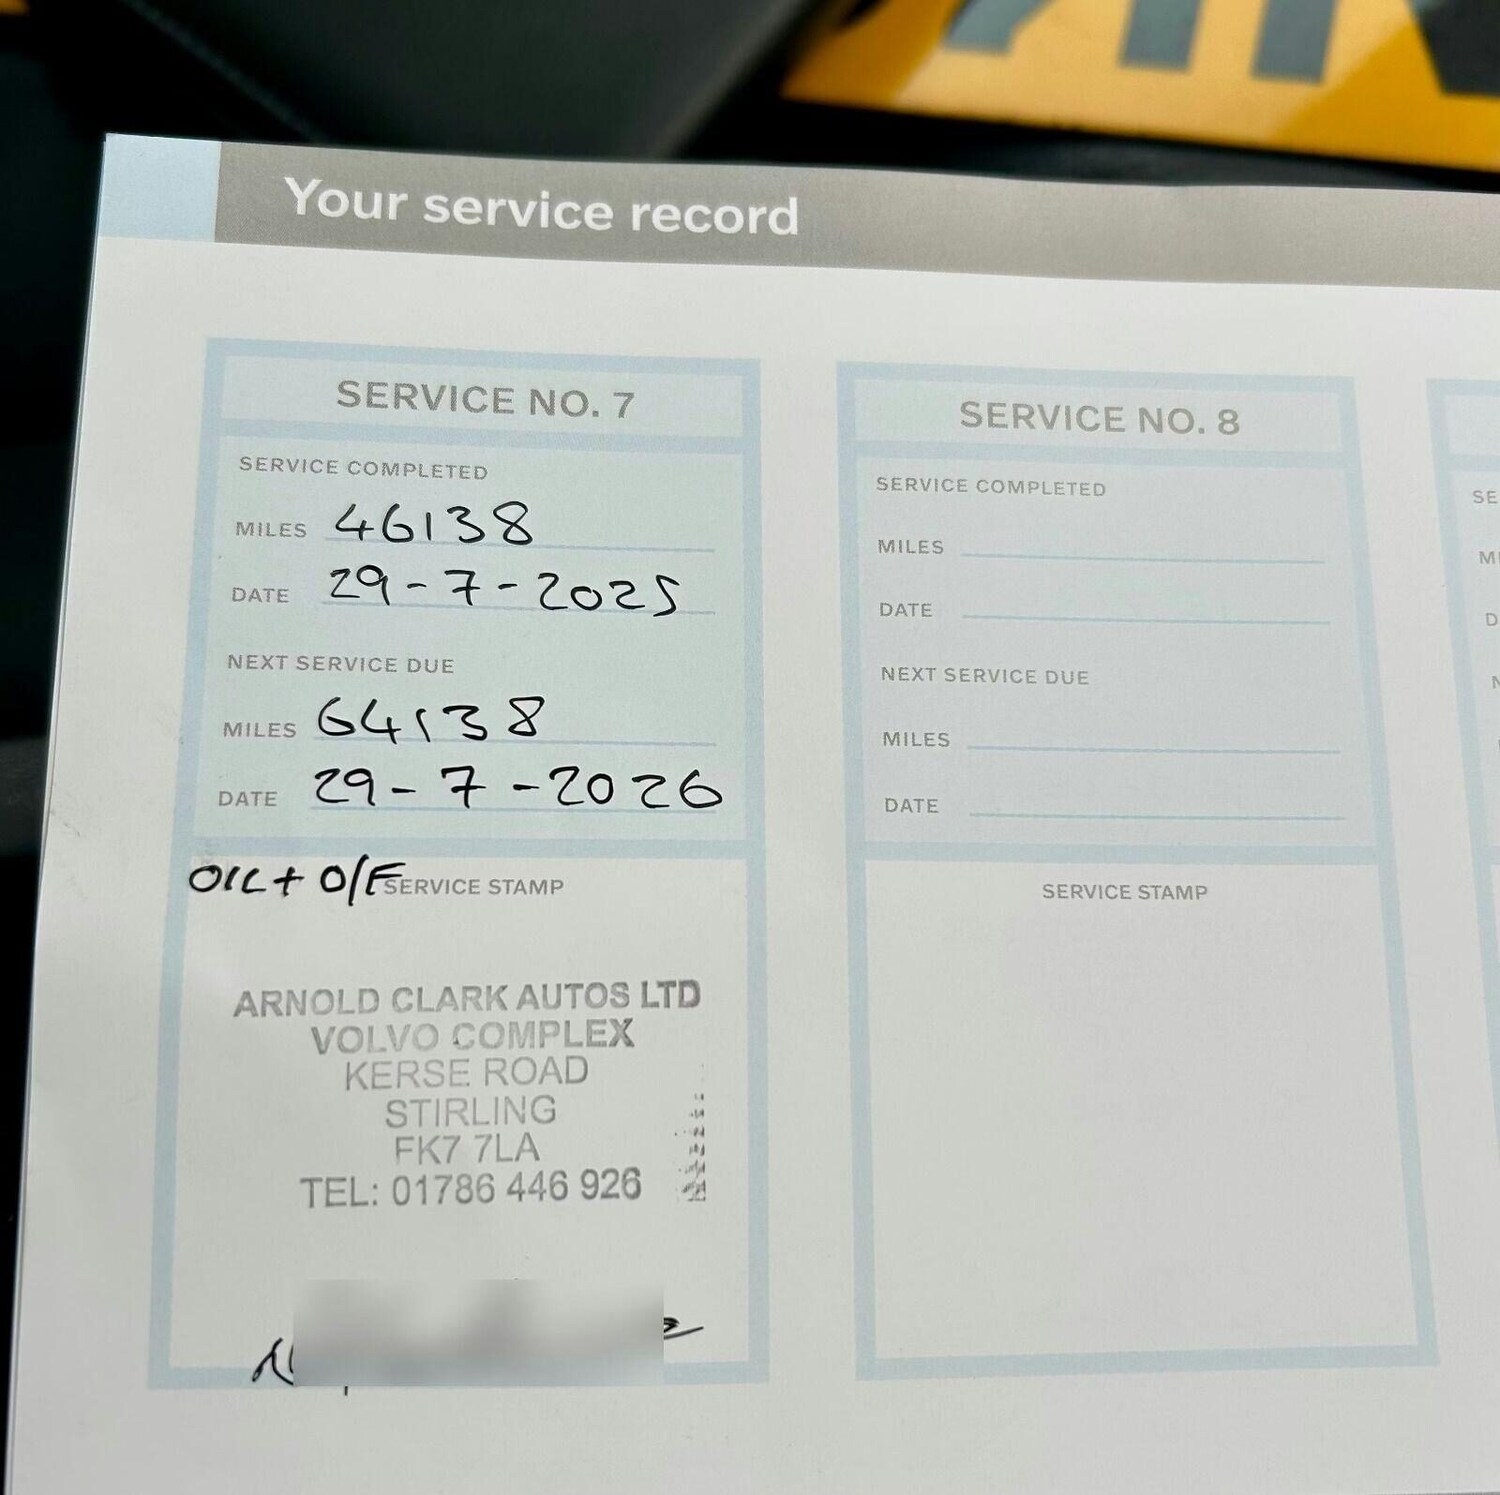 Your service record
SERVICE NO. 7
SERVICE COMPLETED
MILES 46138
DATE 29-7-2025
NEXT SERVICE DUE
MILES 64138
DATE 29-7-2026
OIL + O/F SERVICE STAMP
ARNOLD CLARK AUTOS LTD
VOLVO COMPLEX
KERSE ROAD
STIRLING
FK7 7LA
TEL: 01786 446 926
SERVICE NO. 8
SERVICE COMPLETED
MILES
DATE
NEXT SERVICE DUE
MILES
DATE
SERVICE STAMP